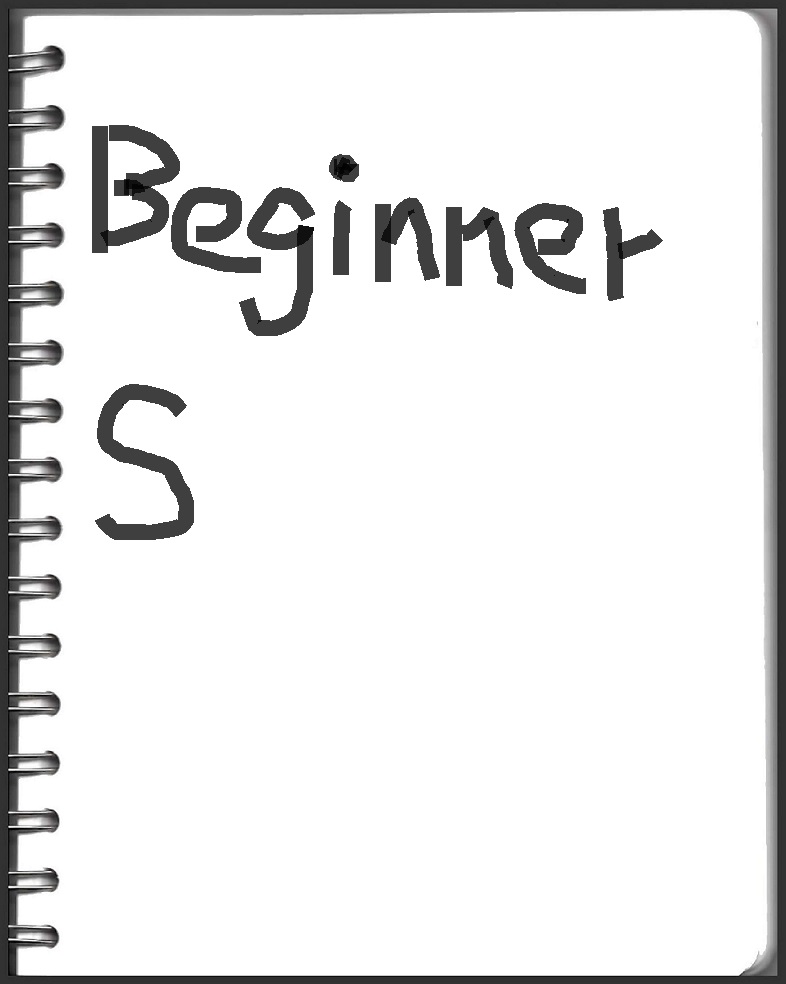 Beginner
S